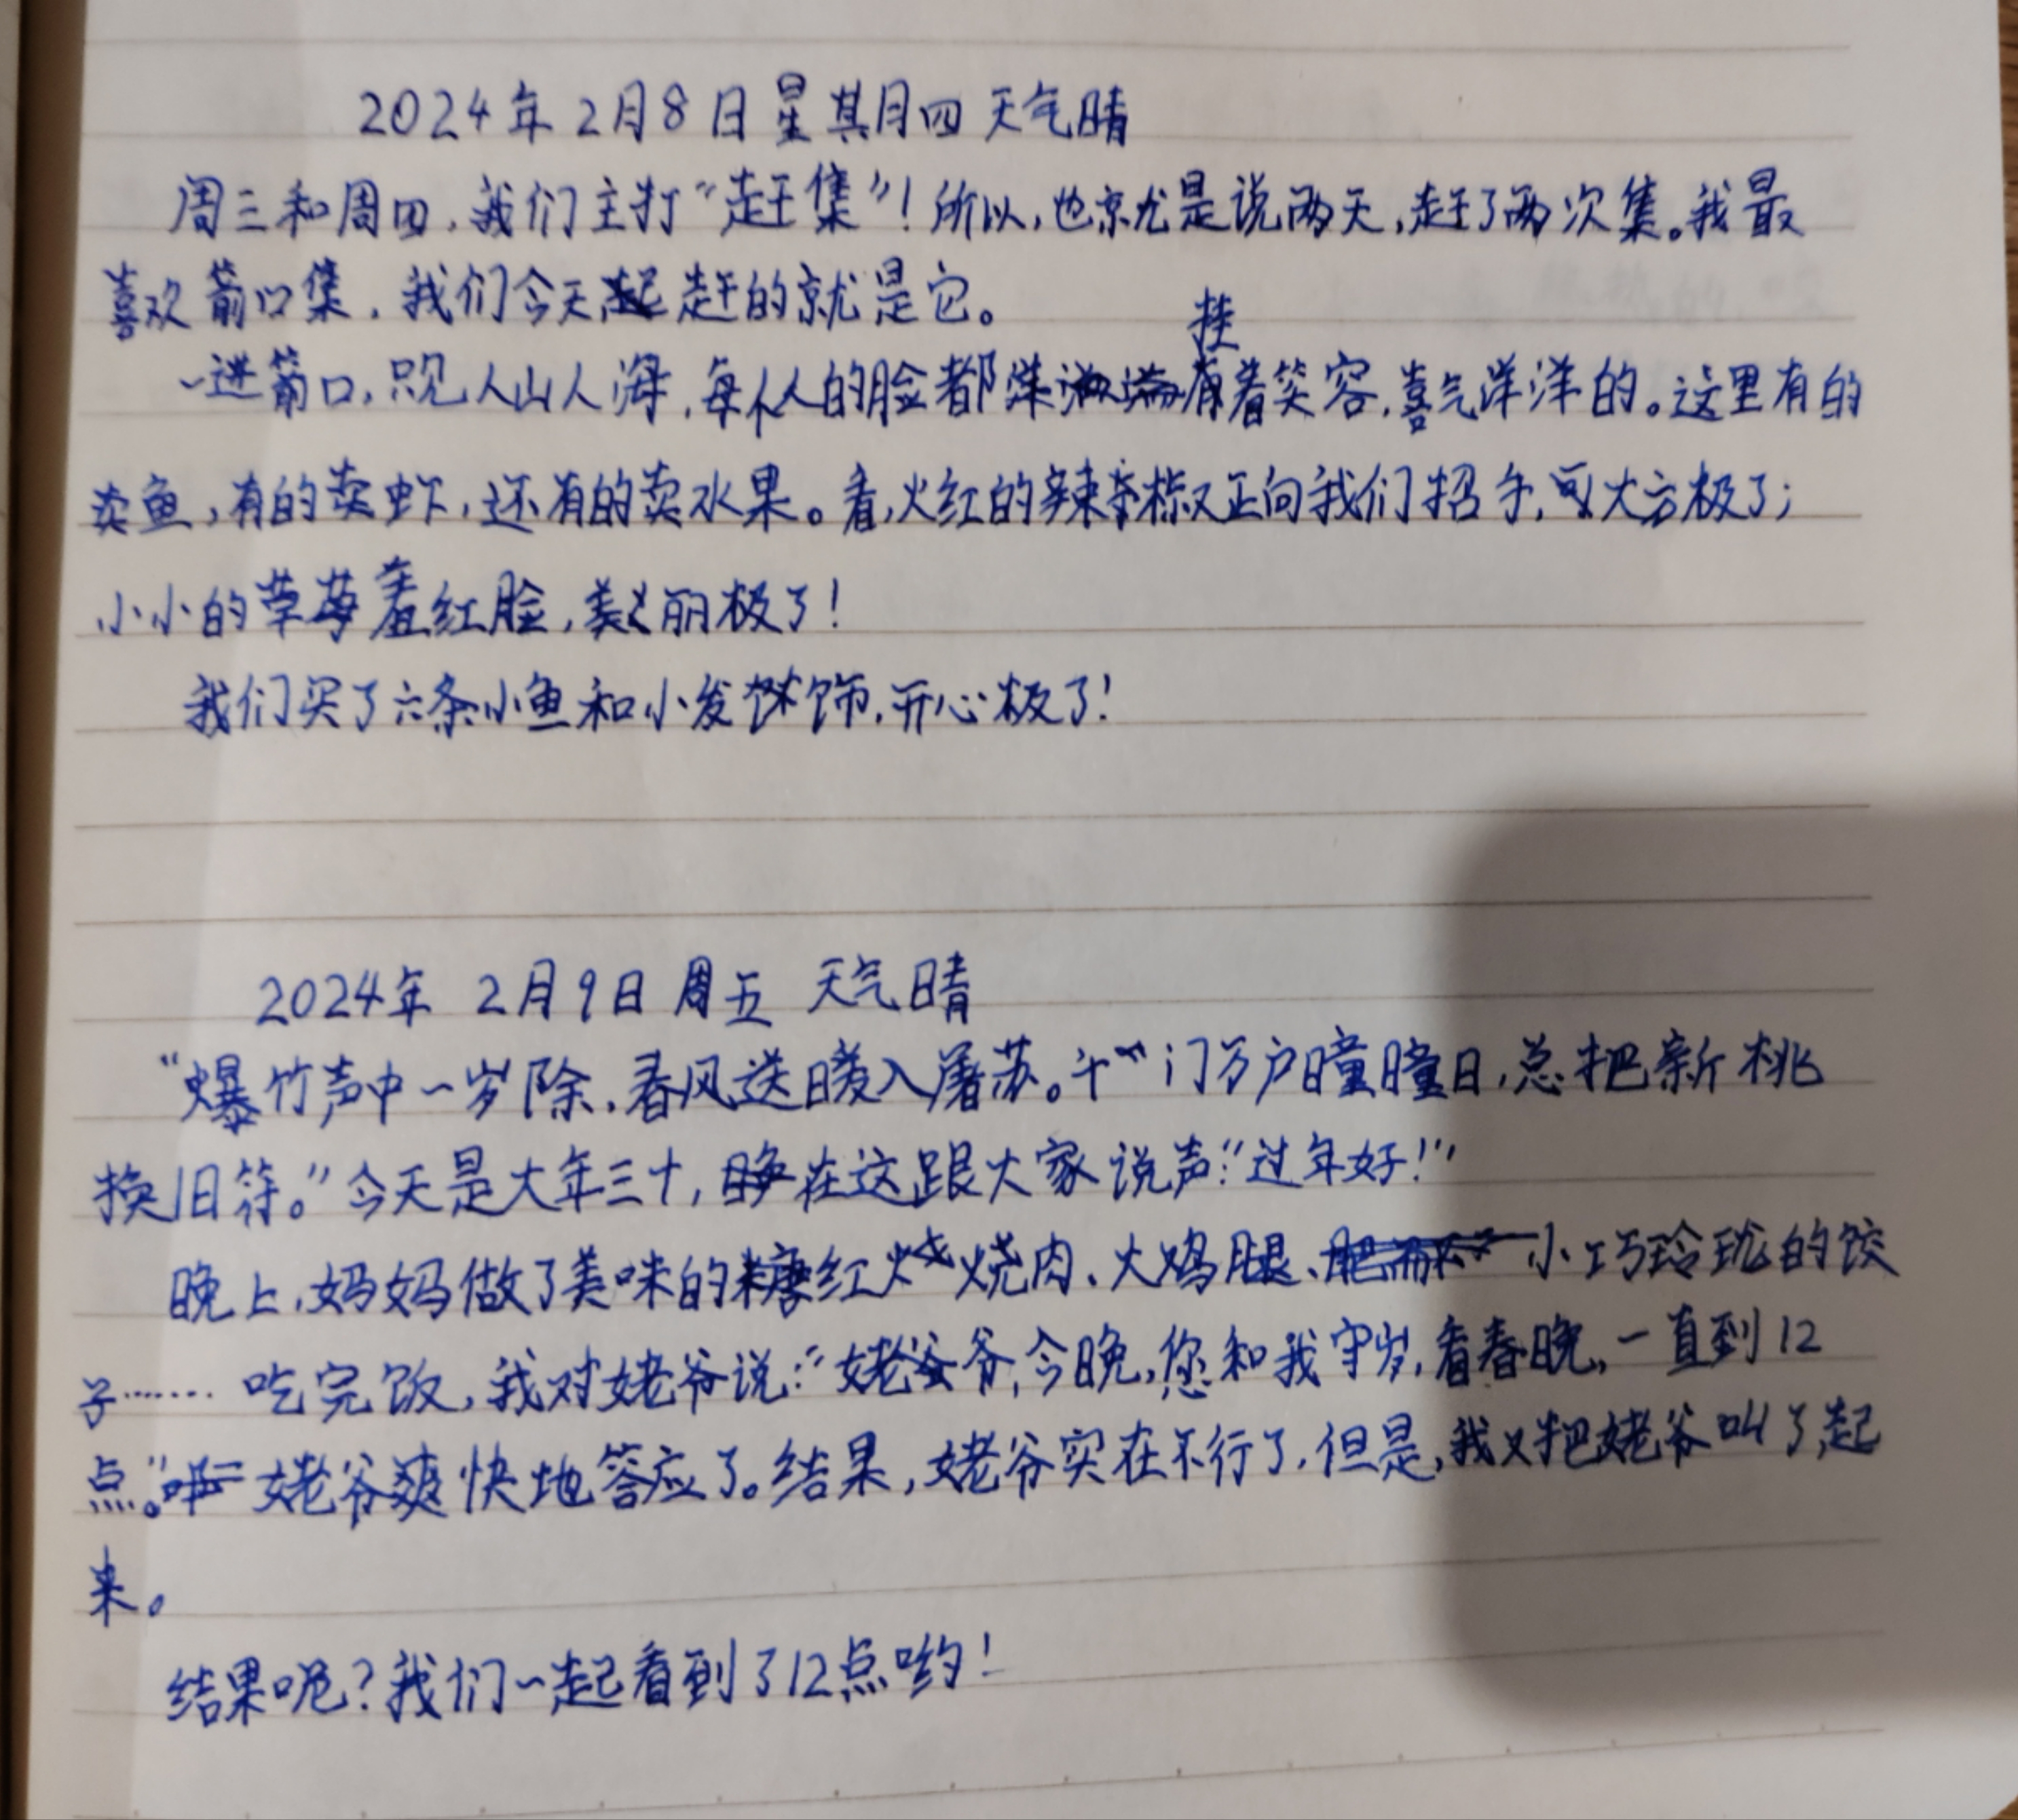 2024年2月8日星期四 天气晴
周三和周四，我们主打“赶集”！所以，也就是说两天，赶了两次集。我最
喜欢箭口集，我们今天赶的就是它。
一进箭口，只见人山人海，每个人的脸都洋溢挂着笑容，喜气洋洋的。这里有的
卖鱼，有的卖虾，还有的卖水果。看，火红的辣椒又正向我们招手，可大方极了；
小小的草莓羞红脸，美丽极了！
我们买了六条小鱼和小发饰，开心极了！
2024年 2月9日 周五 天气晴
“爆竹声中一岁除，春风送暖入屠苏。千门万户曈曈日，总把新桃
换旧符。”今天是大年三十，在这跟大家说声：“过年好！”
晚上，妈妈做了美味的糖红烧肉、火鸡腿、小巧玲珑的饺
子…… 吃完饭，我对姥爷说：“姥爷，今晚，您和我守岁，看春晚，一直到12
点。”姥爷爽快地答应了。结果，姥爷实在不行了，但是，我又把姥爷叫了起
来。
结果呢？我们一起看到了12点哟！